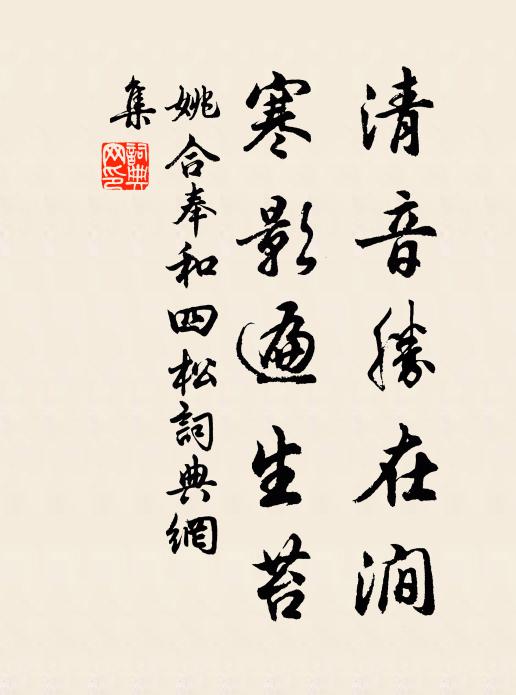 清音勝在澗
寒影遍生苔
姚合奉和四松詞典網
集
詞典網印